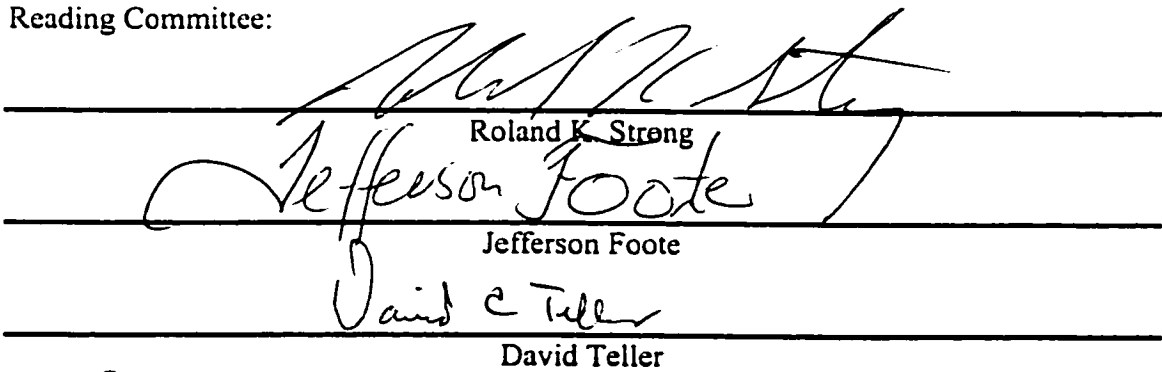 Reading Committee:
Roland K. Strong
Roland K. Strong
Jefferson Foote
Jefferson Foote
David C Teller
David Teller